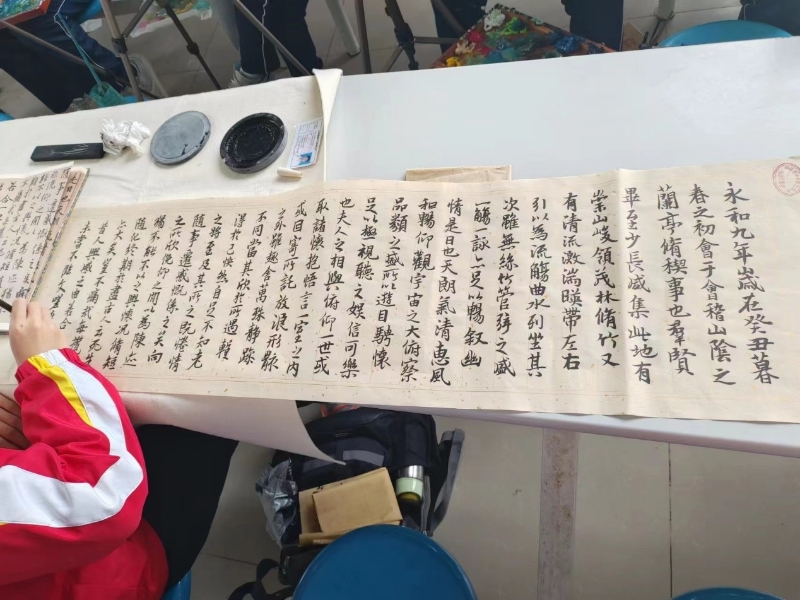 永和九年歲在癸丑暮
春之初會于會稽山陰之
蘭亭脩稧事也羣賢
畢至少長咸集此地有
崇山峻領茂林脩竹又
有清流激湍暎帶左右
引以為流觴曲水列坐其
次雖無絲竹管弦之盛
一觴一詠亦足以暢叙幽
情是日也天朗氣清惠風
和暢仰觀宇宙之大俯察
品類之盛所以遊目騁懷
足以極視聽之娛信可樂
也夫人之相與俯仰一世或
取諸懷抱悟言一室之內
或因寄所託放浪形骸
之外雖趣舍萬殊靜躁
不同當其欣於所遇暫
得於己怏然自足不知老
之將至及其所之既惓情
隨事遷感慨係之矣向
之所欣俛仰之間以為陳迹
猶不能不以之興懷況脩短
隨化終期於盡古人云死生
亦大矣豈不痛哉每攬
昔人興感之由若合
未嘗不臨文嗟